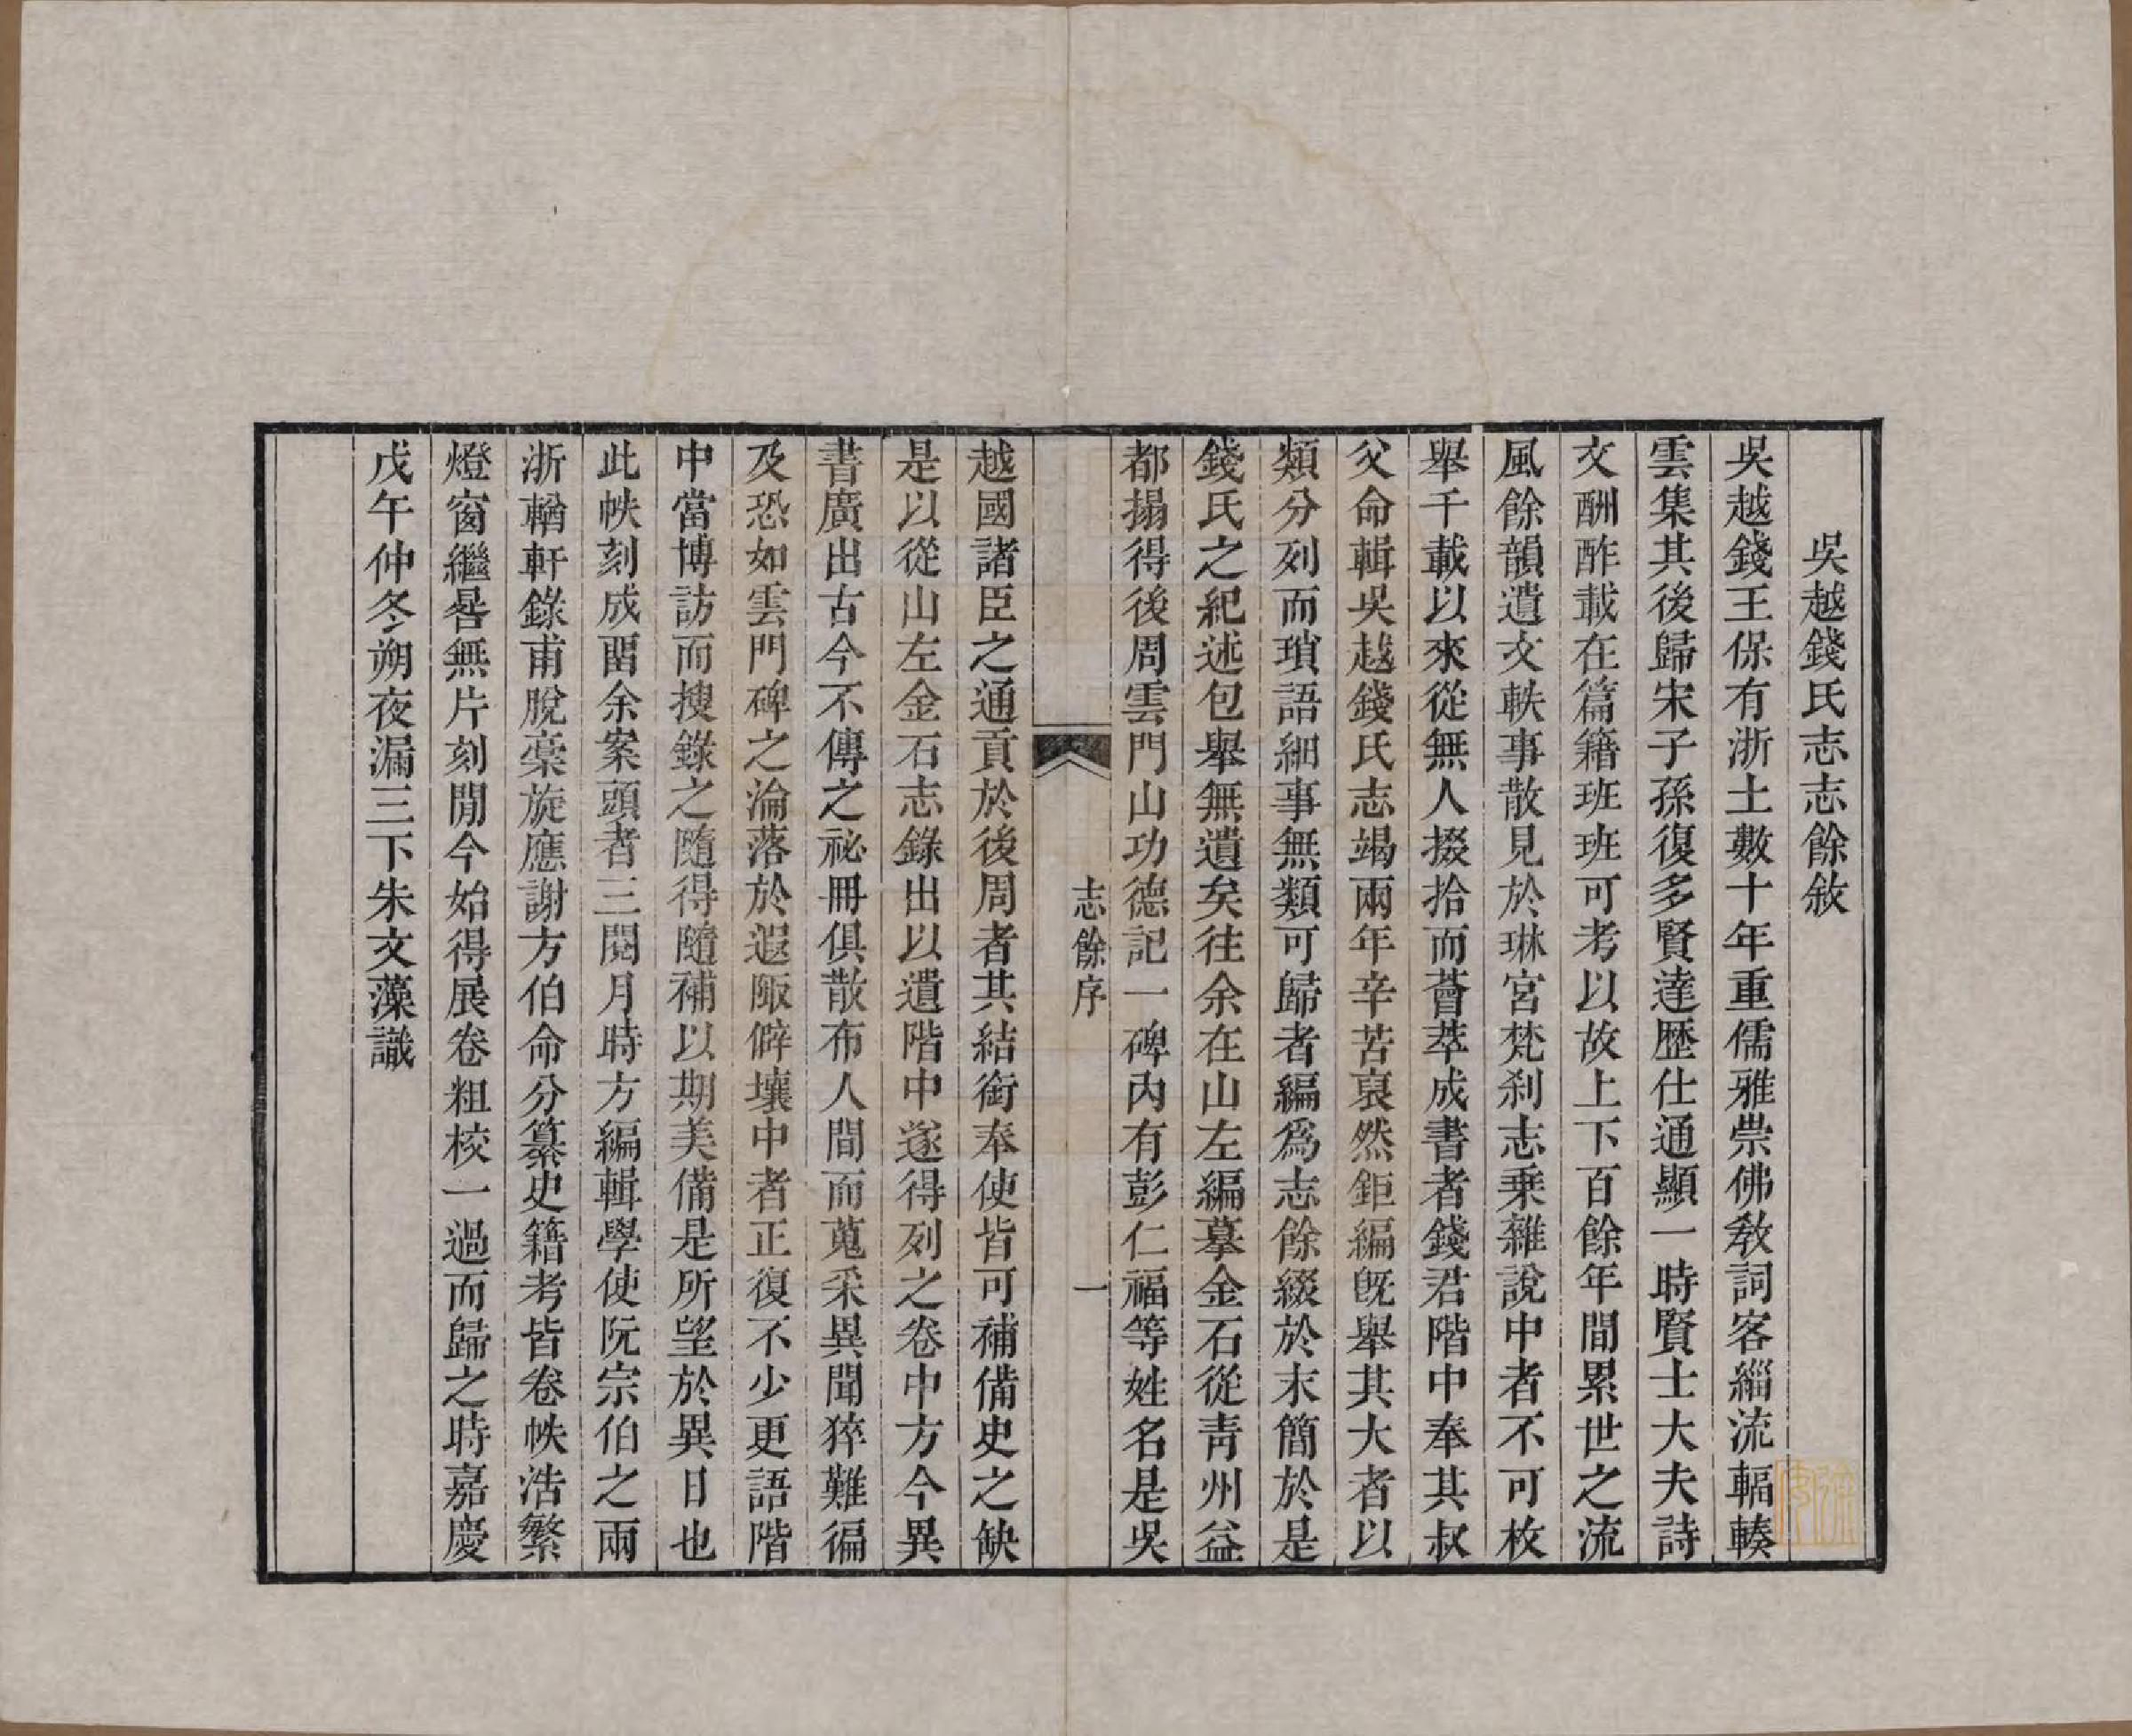 吳越錢氏志志餘敘
吳越錢王保有浙土數十年重儒雅崇佛敎詞客緇流輻輳
雲集其後歸宋子孫復多賢達歷仕通顯一時賢士大夫詩
文酬酢載在篇籍班班可考以故上下百餘年間累世之流
風餘韻遺文軼事散見於琳宮梵刹志乗雜說中者不可枚
舉千載以來從無人掇拾而薈萃成書者錢君階中奉其叔
父命輯吳越錢氏志竭兩年辛苦裒然鉅編旣舉其大者以
類分列而瑣語細事無類可歸者編爲志餘綴於末簡於是
錢氏之紀述包舉無遺矣往余在山左編摹金石從靑州益
都搨得後周雲門山功德記一碑內有彭仁福等姓名是吳
志餘序
一
越國諸臣之通貢於後周者其結銜奉使皆可補備史之缺
是以從山左金石志錄出以遺階中遂得列之卷中方今異
書廣出古今不傳之祕冊俱散布人間而蒐采異聞猝難徧
及恐如雲門碑之淪落於遐陬僻壤中者正復不少更語階
中當博訪而搜錄之隨得隨補以期美備是所望於異日也
此帙刻成畱余案頭者三閱月時方編輯學使阮宗伯之兩
浙輶軒錄甫脫稾旋應謝方伯命分纂史籍考皆卷帙浩繁
燈窗繼晷無片刻閒今始得展卷粗校一過而歸之時嘉慶
戊午仲冬朔夜漏三下朱文藻識